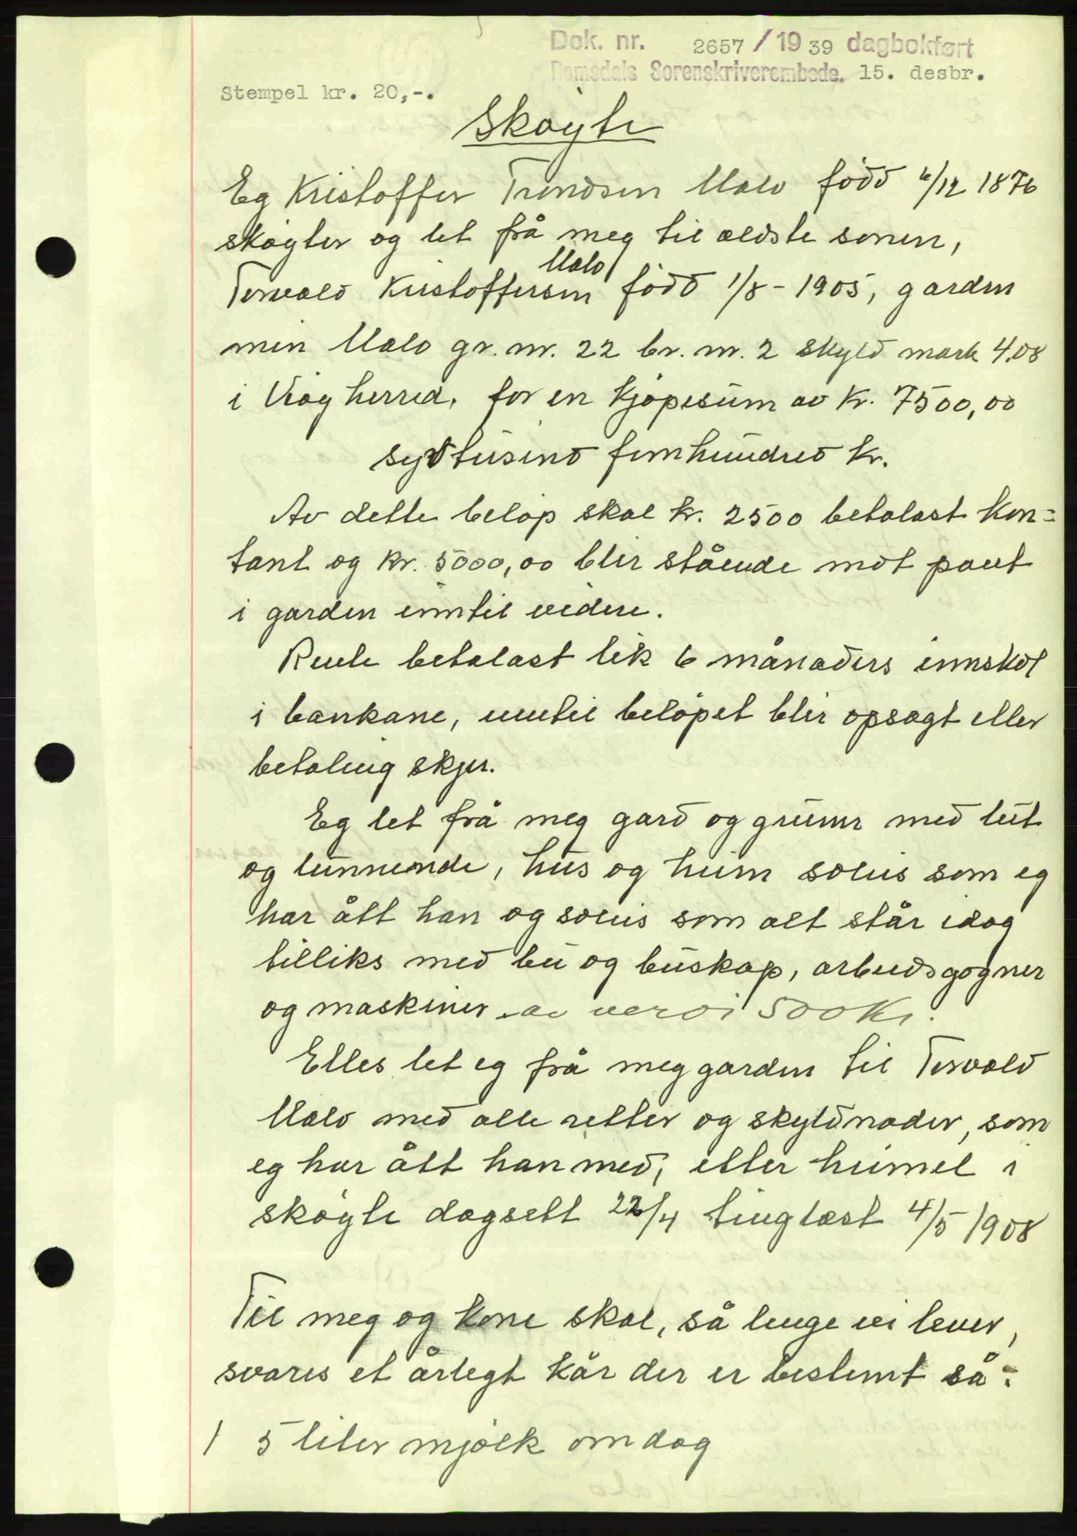 Dok. nr. 2657 / 19 39 dagbokført
Romsdals Sorenskriverembede. 15. desbr.
Stempel kr. 20,-.
Skøyte
Eg Kristoffer Trondsen Malo født 6/12 1876
skøyter og let frå meg til ældste sonen,
Malo
Torvald Kristoffersen født 1/8 - 1905, garden
min Malo gr. nr. 22 br. nr. 2 skyld mark 4.08
i Veøy herred, for en kjøpesum av kr. 7500,00
syvtusind femhundred kr.
Av dette beløp skal kr. 2500 betalast kon=
tant og kr. 5000,00 blir stående mot pant
i garden inntil videre.
Rente betalast lik 6 månaders innskot
i bankane, inntil beløpet blir opsagt eller
betaling skjer.
Eg let frå meg gard og grunn med lut
og lunnende, hus og heim soleis som eg
har ått han og soleis som alt står idag
tilliks med bu og buskap, arbeidsgogner
og maskiner. av verdi 500 Kr.
Elles let eg frå meg garden til Torvald
Malo med alle retter og skyldnader, som
eg har ått han med, etter heimel i
skøyte dagsett 22/4 tinglæst 4/5 1908
Til meg og kone skal, så lenge vi lever,
svares et årlegt kår der er bestemt så:
1 5 liter mjølk om dag